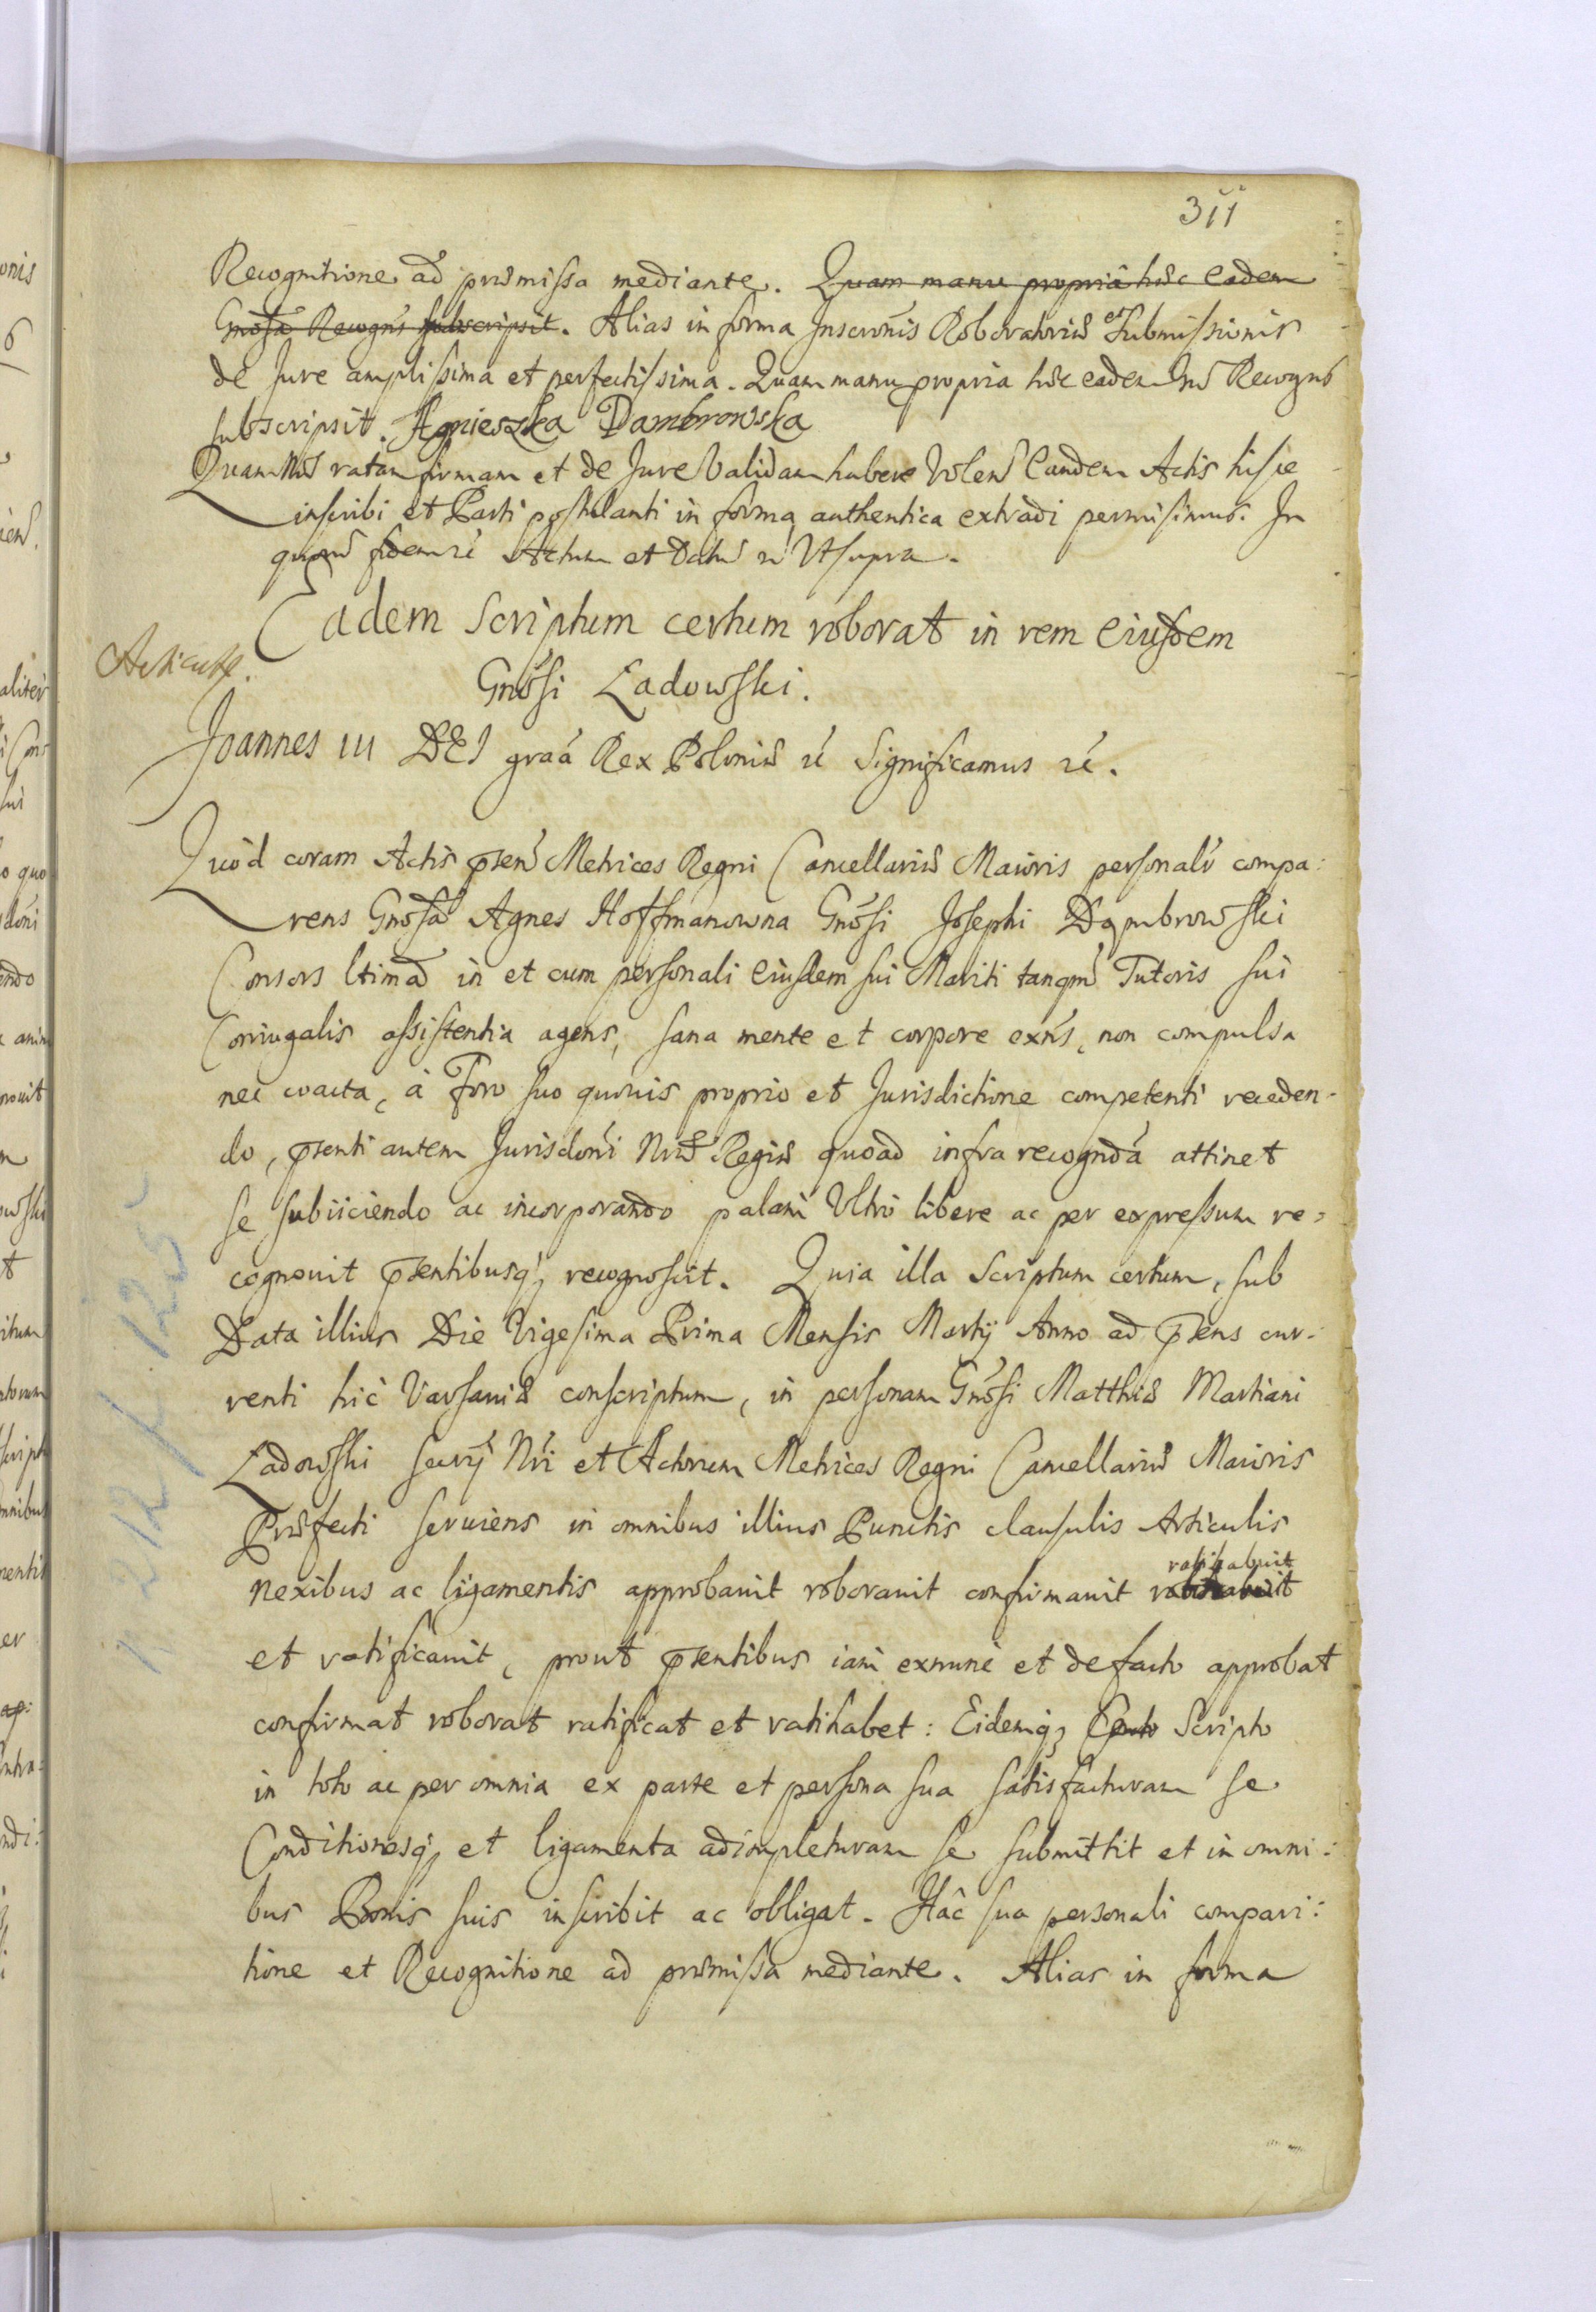 311
Recognitione ad præmissa mediante. Quam manu propriâ hæc eadem
Gnosa Recogns subscripsit. Alias in forma Inscronis Roboratoriæ et Submissionis
de Jure amplissima et perfectissima. Quam manu propria hæc eadem Recogns
subscripsit. Agnieszka Dambrowska
Quam Nos ratam firmam et de Jure Validam habere Volen Eandem Actis hisce
inscribi et Parti postulanti in forma authentica extradi permisimus. In
quorū fidem rć Actum et Datū rć Ut supra.
Eadem Scriptum certum roborat in rem eiusdem
Gnosi Ladowski.
Joannes III DEI graá Rex Poloniæ rć Significamus rć.
Quod coram Actis pten Metrices Regni Cancellariæ Maioris personalr compa:
rens Gnosa Agnes Hoffmanowna Gnosi Josephi Dąmbrowski
Consors ltima in et cum personali eiusdem sui Mariti tanqm Tutoris sui
Coniugalis assistentia agens, sana mente et corpore exns, non compulsa
nec coacta, à Foro suo quovis proprio et Jurisdictione competenti receden-
do, pnti autem Jurisdoni Nræ Regiæ quoad infra recognda attinet
se subiiciendo ac incorporando palam Ultro libere ac per expressum re=
cognouit pntibusq; recognoscit. Quia illa Scriptum certum, sub
Data illius Die Vigesima Prima Mensis Martij Anno ad pns cur-
renti hic Varsaviæ conscriptum, in personam Gnosi Matthiæ Martiani
Ladowski Secrij Nri et Actorum Metrices Regni Cancellariæ Maioris
Præfecti seruiens in omnibus illius Punctis clausulis Articulis
ratihabuit
nexibus ac ligamentis approbauit roborauit confirmauit
et ratificauit, prout pntibus iam exnunc et de facto approbat
confirmat roborat ratificat et ratihabet: Eidemq; Scripto
in toto ac per omnia ex parte et persona sua satisfacturam se
Conditionesq; et ligamenta adimpleturam se submittit et in omni:
bus Bonis suis inscribit ac obligat. Hâc sua personali compari:
tione et Recognitione ad præmissa mediante. Alias in forma